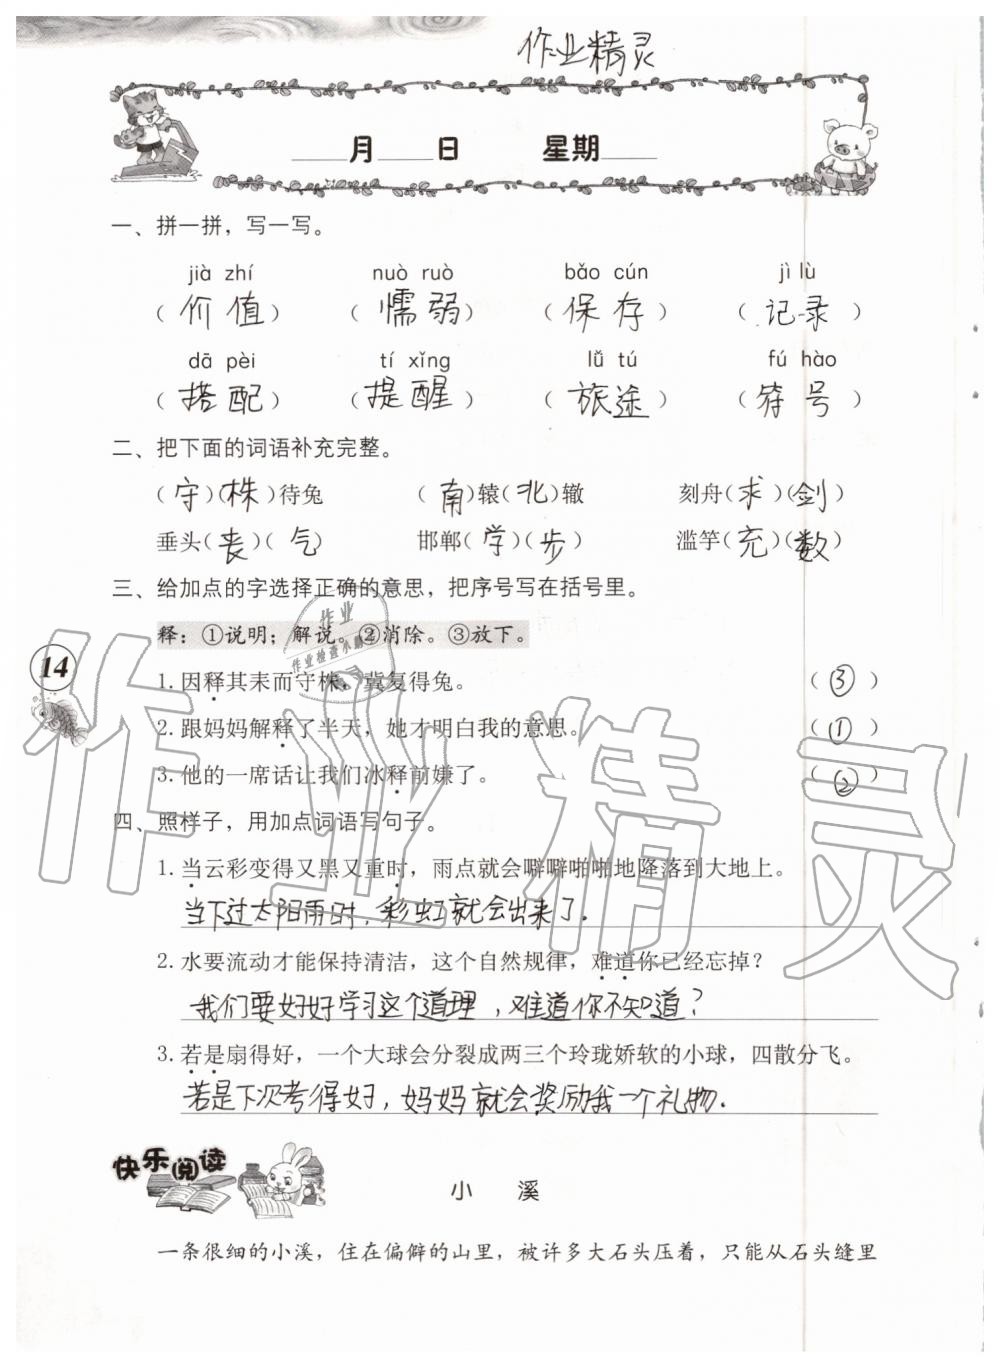 作业精灵
月 日 星期
一、拼一拼，写一写。
jià zhí nuò ruò bǎo cún jì lù
（价值） （懦弱） （保存） （记录）
dā pèi tí xǐng lǚ tú fú hào
（搭配） （提醒） （旅途） （符号）
二、把下面的词语补充完整。
（守）（株）待兔 （南）辕（北）辙 刻舟（求）（剑）
垂头（丧）（气） 邯郸（学）（步） 滥竽（充）（数）
三、给加点的字选择正确的意思，把序号写在括号里。
释：①说明；解说。②消除。③放下。
14
1. 因释其耒而守株，冀复得兔。 （③）
2. 跟妈妈解释了半天，她才明白我的意思。 （①）
3. 他的一席话让我们冰释前嫌了。 （②）
四、照样子，用加点词语写句子。
1. 当云彩变得又黑又重时，雨点就会噼噼啪啪地降落到大地上。
当下过太阳雨时，彩虹就会出来了.
2. 水要流动才能保持清洁，这个自然规律，难道你已经忘掉？
我们要好好学习这个道理，难道你不知道？
3. 若是扇得好，一个大球会分裂成两三个玲珑娇软的小球，四散分飞。
若是下次考得好，妈妈就会奖励我一个礼物.
快乐阅读
小 溪
一条很细的小溪，住在偏僻的山里，被许多大石头压着，只能从石头缝里
作业
作业检查小帮手
作业精灵